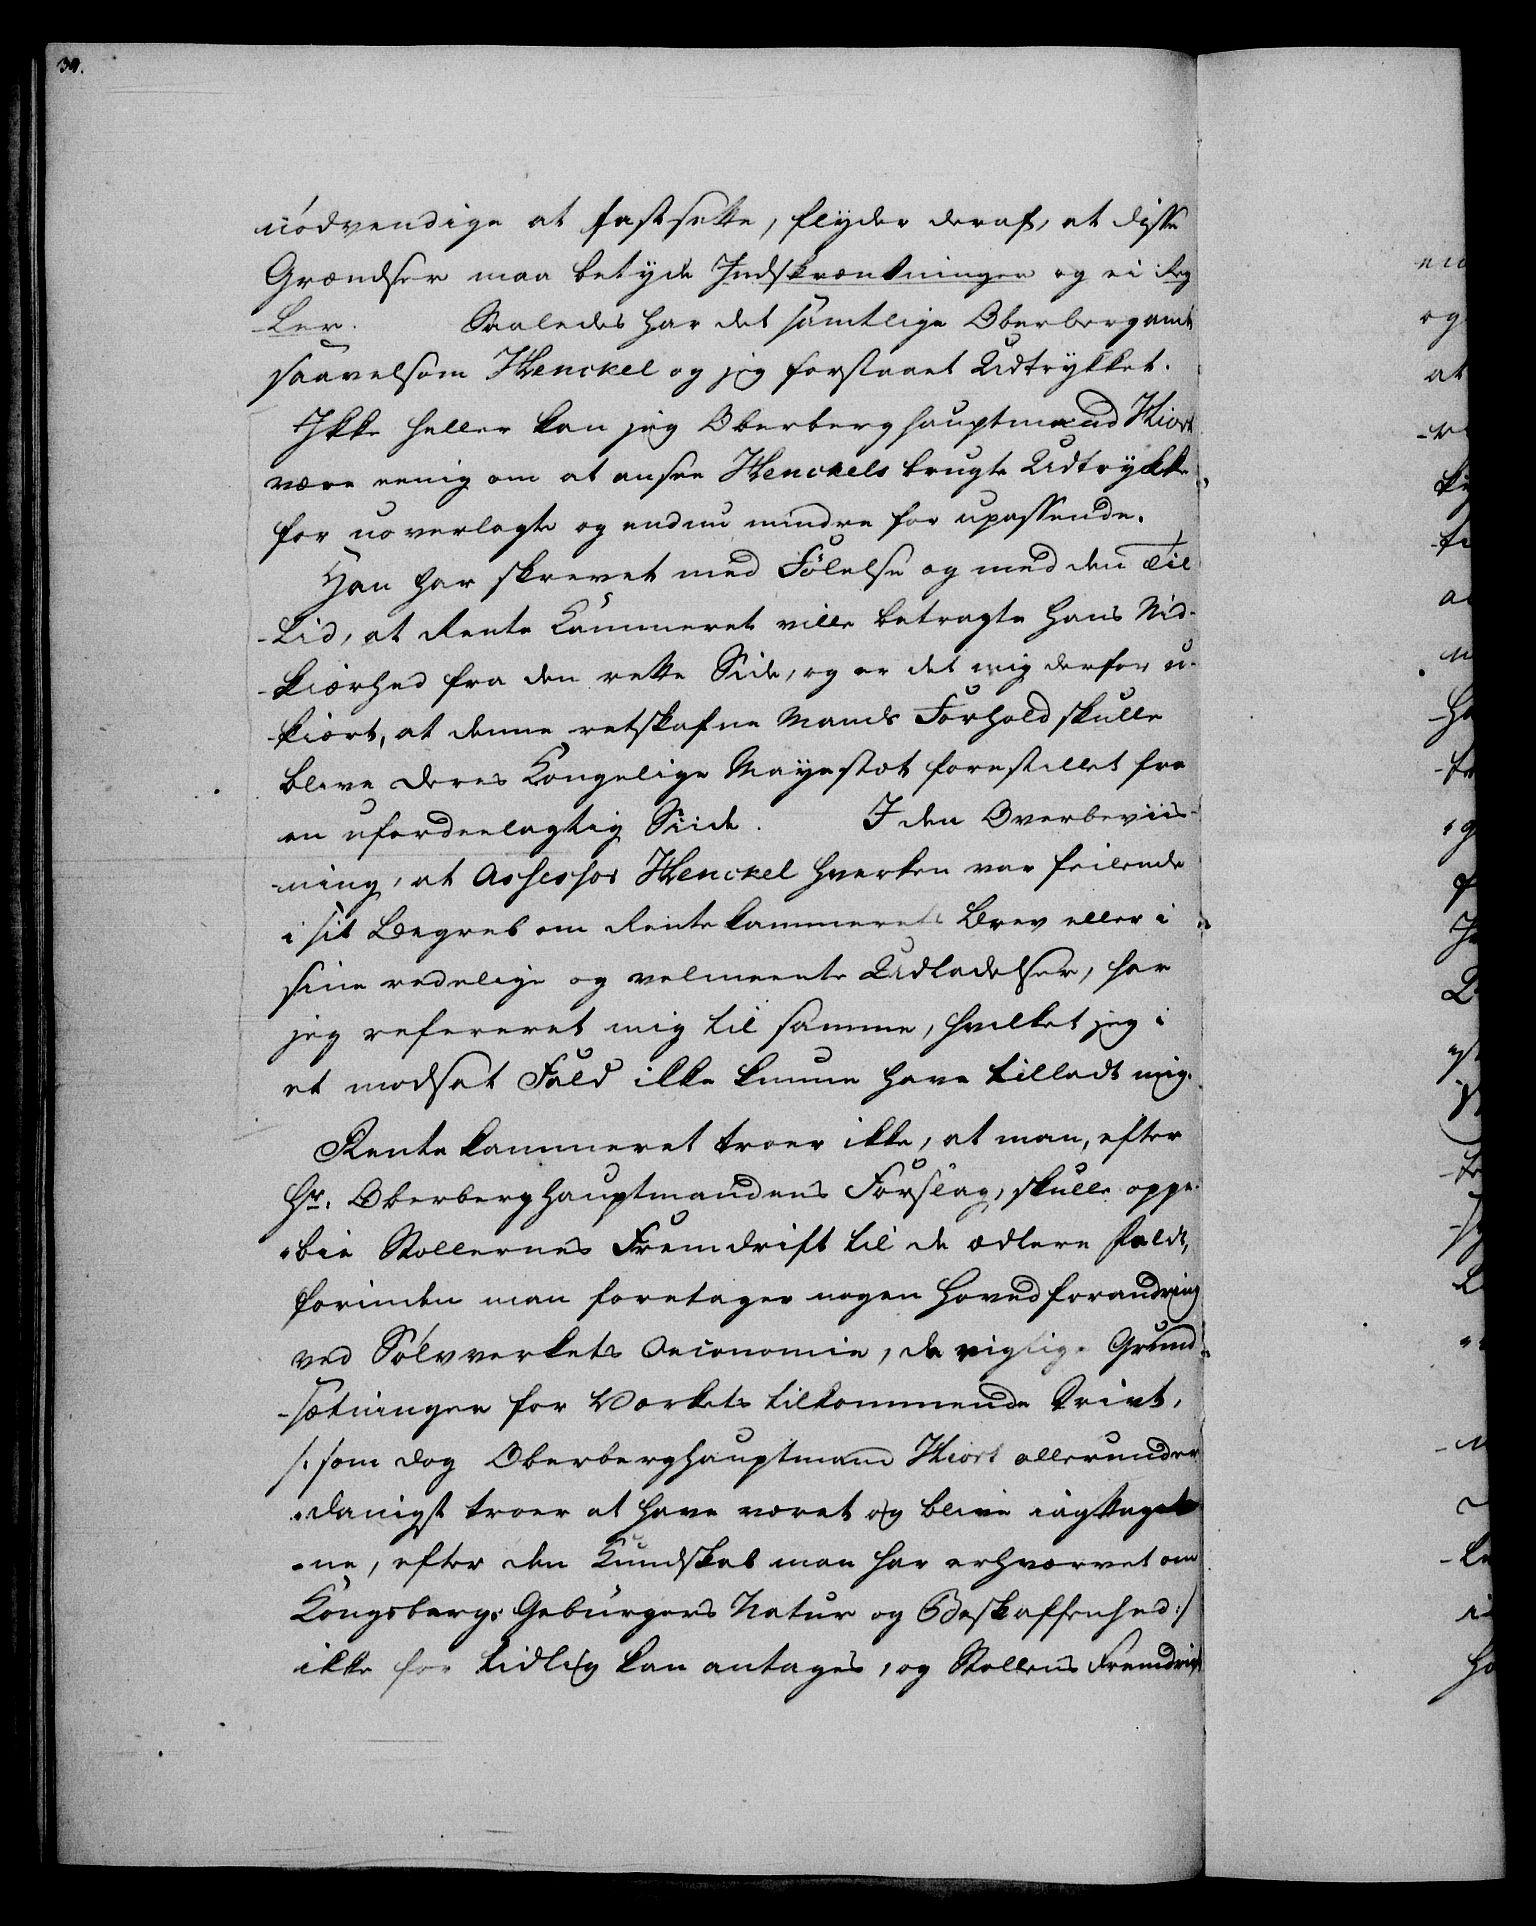 34.
nödvendige at fastsætte, flyder deraf, at disse
Grændser maa betyde Indskrænkninger og ei Reg
-ler. Saaledes har det samtlige Oberbergamt
saavelsom Henckel og jeg forstaaet Udtrykket.
Ikke heller kan jeg Oberberghauptmand Hiort
være eenig om at ansee Henckels brugte Udtrykke
for uoverlagte og endnu mindre for upassende.
Han har skrevet med Fölelse og med den Til
-lid, at Rente Kammeret ville betragte hans Nid-
-kiærhed fra den rette Side, og er det mig derfor u-
-kiært, at denne retskafne Mands Forhold skulle
blive Deres Kongelige Mayestæt forestillet fra
en ufordeelagtig Side. I den Overbeviis-
-ning, at Assessor Henckel hverken var feilende
i sit Begreb om Rentekammerets Brev eller i
sine redelige og velmeente Udladelser, har
jeg refereret mig til samme, hvilket jeg i
et modsat Fald ikke kunne have tilladt mig.
Rentekammeret troer ikke, at man, efter
Hr. Oberberghauptmandens Forslag, skulle oppe-
-bie Stollernes Fremdrift til de ædlere Feldt,
forinden man foretager nogen Hovedforandring
ved Sölvverkets Oeconomie, de vigtige Grund-
-sætninger for Værkets tilkommende Drivt,
/: som dog Oberberghauptmand Hiort allerunder
-danigst troer at have været og blive iagttaget
-ne, efter den Kundskab man har erhværvet om
Kongsbergs Gebürgers Natur og Beskaffenhed :/
ikke for tidlig kan antages, og Stollens Fremdrift